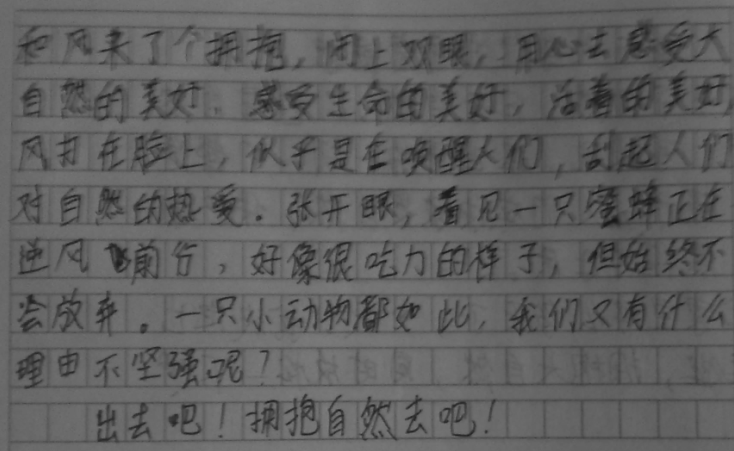 和风来了个拥抱，闭上双眼，用心去感受大
自然的美好，感受生命的美好，活着的美好，
风打在脸上，似乎是在唤醒人们，刮起人们
对自然的热爱。张开眼，看见一只蜜蜂正在
逆风前行，好像很吃力的样子，但始终不
会放弃。一只小动物都如此，我们又有什么
理由不坚强呢？
出去吧！拥抱自然去吧！